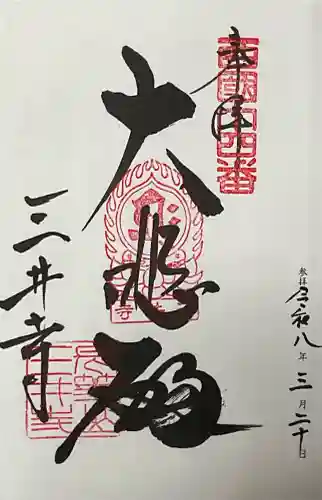 奉拝
西国十四番
参拝 令和八年三月二十日
大悲殿
三井寺